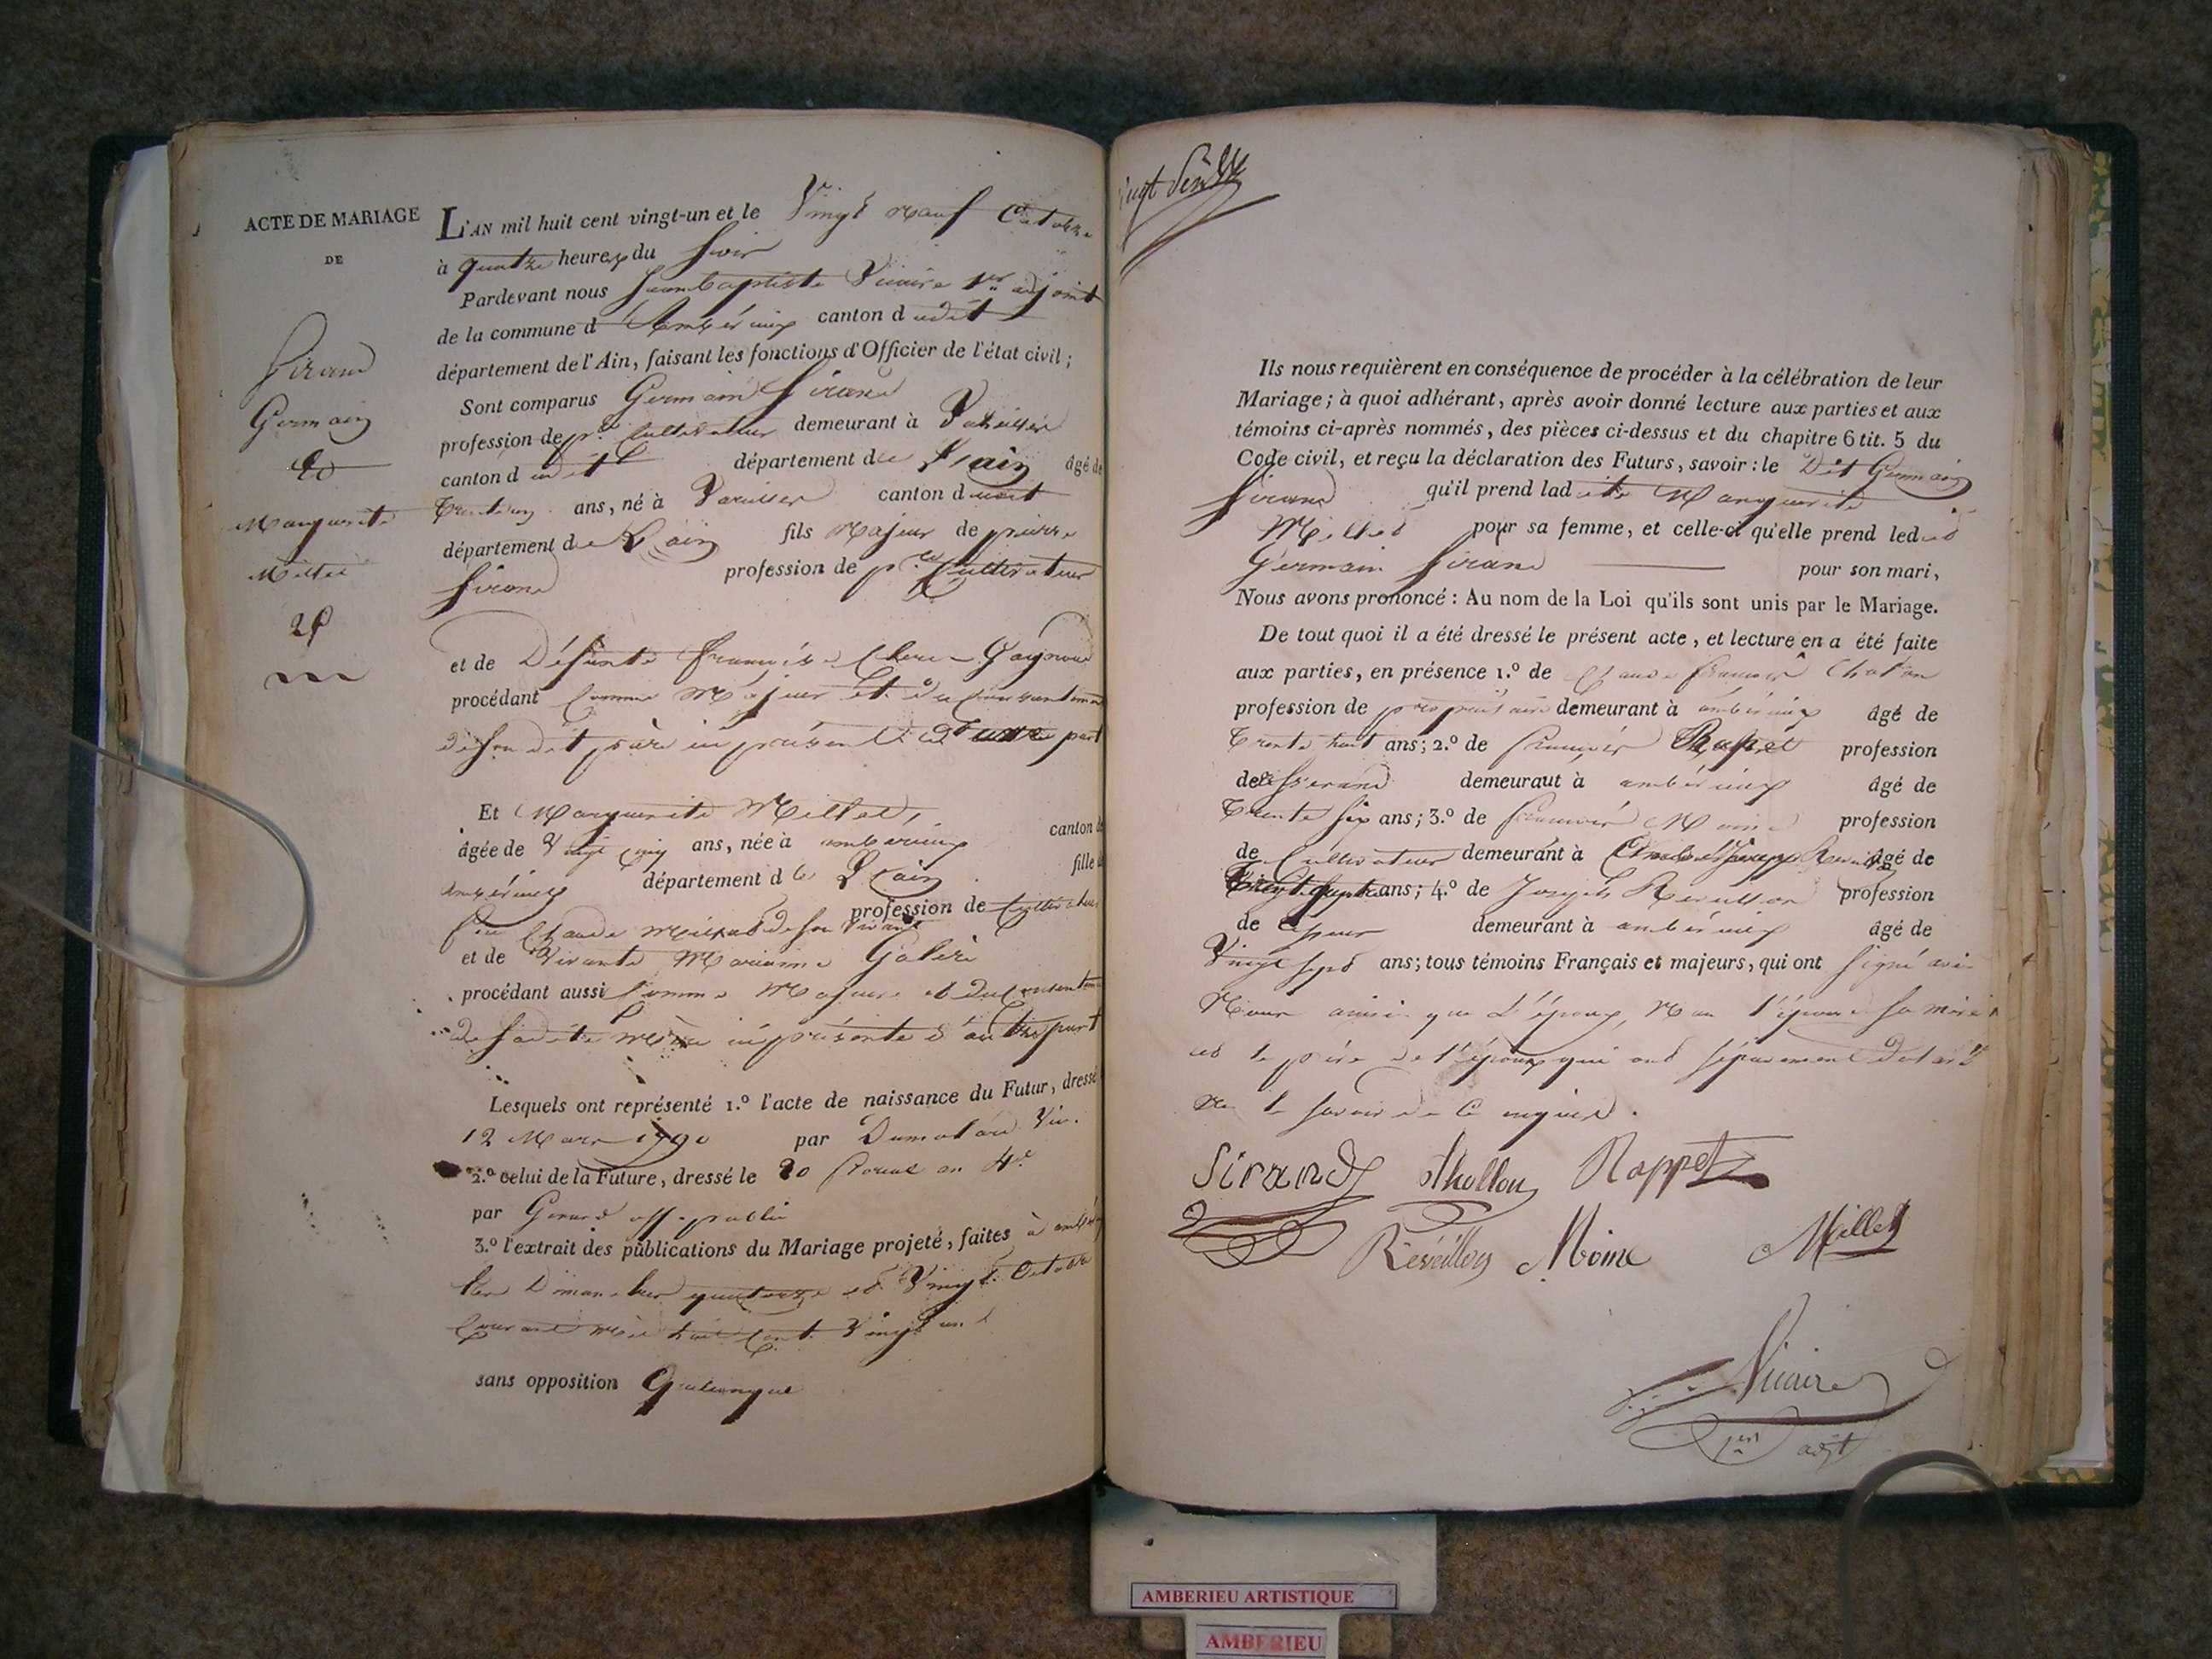 ACTE DE MARIAGE
DE
Sirand
Germain
Et
Marguerite
Millet
L'AN mil huit cent vingt-un et le Vingt neuf Octobre
à quatre heures du Soir
Pardevant nous Jean baptiste Vicaire 1er adjoint
de la commune d'Ambérieux canton dudit
département de l'Ain, faisant les fonctions d'Officier de l'état civil;
Sont comparus Germain Sirand
profession de pre Cultivateur demeurant à Vareilles
canton dudit département de L'ain âgé de
Trente un ans, né à Vareilles canton dudit
département de L'ain fils Majeur de pierre
Sirand profession de pre Cultivateur
et de Défunte françoise Clerc-Gagneux
procédant Comme Majeur et du Consentement
de son dit père ici présent d'une part
Et Marguerite Millet,
âgée de Vingt cinq ans, née à ambérieux canton d
ambérieux département de L'ain fille d
feu Claude Millet de son vivant profession de Cultivateur
et de Vivante Marianne
procédant aussi Comme Majeure et du Consentement
de sa dite Mère ici présente d'autre part
Lesquels ont représenté 1.º l'acte de naissance du Futur, dressé
12 Mars 1790 par Dumolard Vic.
2.º celui de la Future, dressé le 20 floréal an 4e
par off. public
3.º l'extrait des publications du Mariage projeté, faites à ambérieux
les Dimanches quatorze et Vingt Octobre
Courant Mil huit Cent Vingt un
sans opposition Quelconque
Ils nous requièrent en conséquence de procéder à la célébration de leur
Mariage; à quoi adhérant, après avoir donné lecture aux parties et aux
témoins ci-après nommés, des pièces ci-dessus et du chapitre 6 tit. 5 du
Code civil, et reçu la déclaration des Futurs, savoir: le Dit Germain
Sirand qu'il prend ladite Marguerite
Millet pour sa femme, et celle-ci qu'elle prend ledit
Germain Sirand pour son mari,
Nous avons prononcé: Au nom de la Loi qu'ils sont unis par le Mariage.
De tout quoi il a été dressé le présent acte, et lecture en a été faite
aux parties, en présence 1.º de Claude françois
profession de propriétaire demeurant à ambérieux âgé de
Trente huit ans; 2.º de françois Rappet profession
de tisserand demeuraut à ambérieux âgé de
Trente six ans; 3.º de françois Moine profession
de Cultivateur demeurant à âgé de
ans; 4.º de Joseph Reveillon profession
de demeurant à ambérieux âgé de
Vingt sept ans; tous témoins Français et majeurs, qui ont Signé avec
Nous ainsi que L'époux, Non l'épouse sa mère
et le père de l'époux qui ont séparément déclaré
ne le savoir de ce enquis.
Sirand Thollon Rappet
Reveillon Moine Millet
Vicaire
1er adjt
AMBERIEU ARTISTIQUE
AMBERIEU